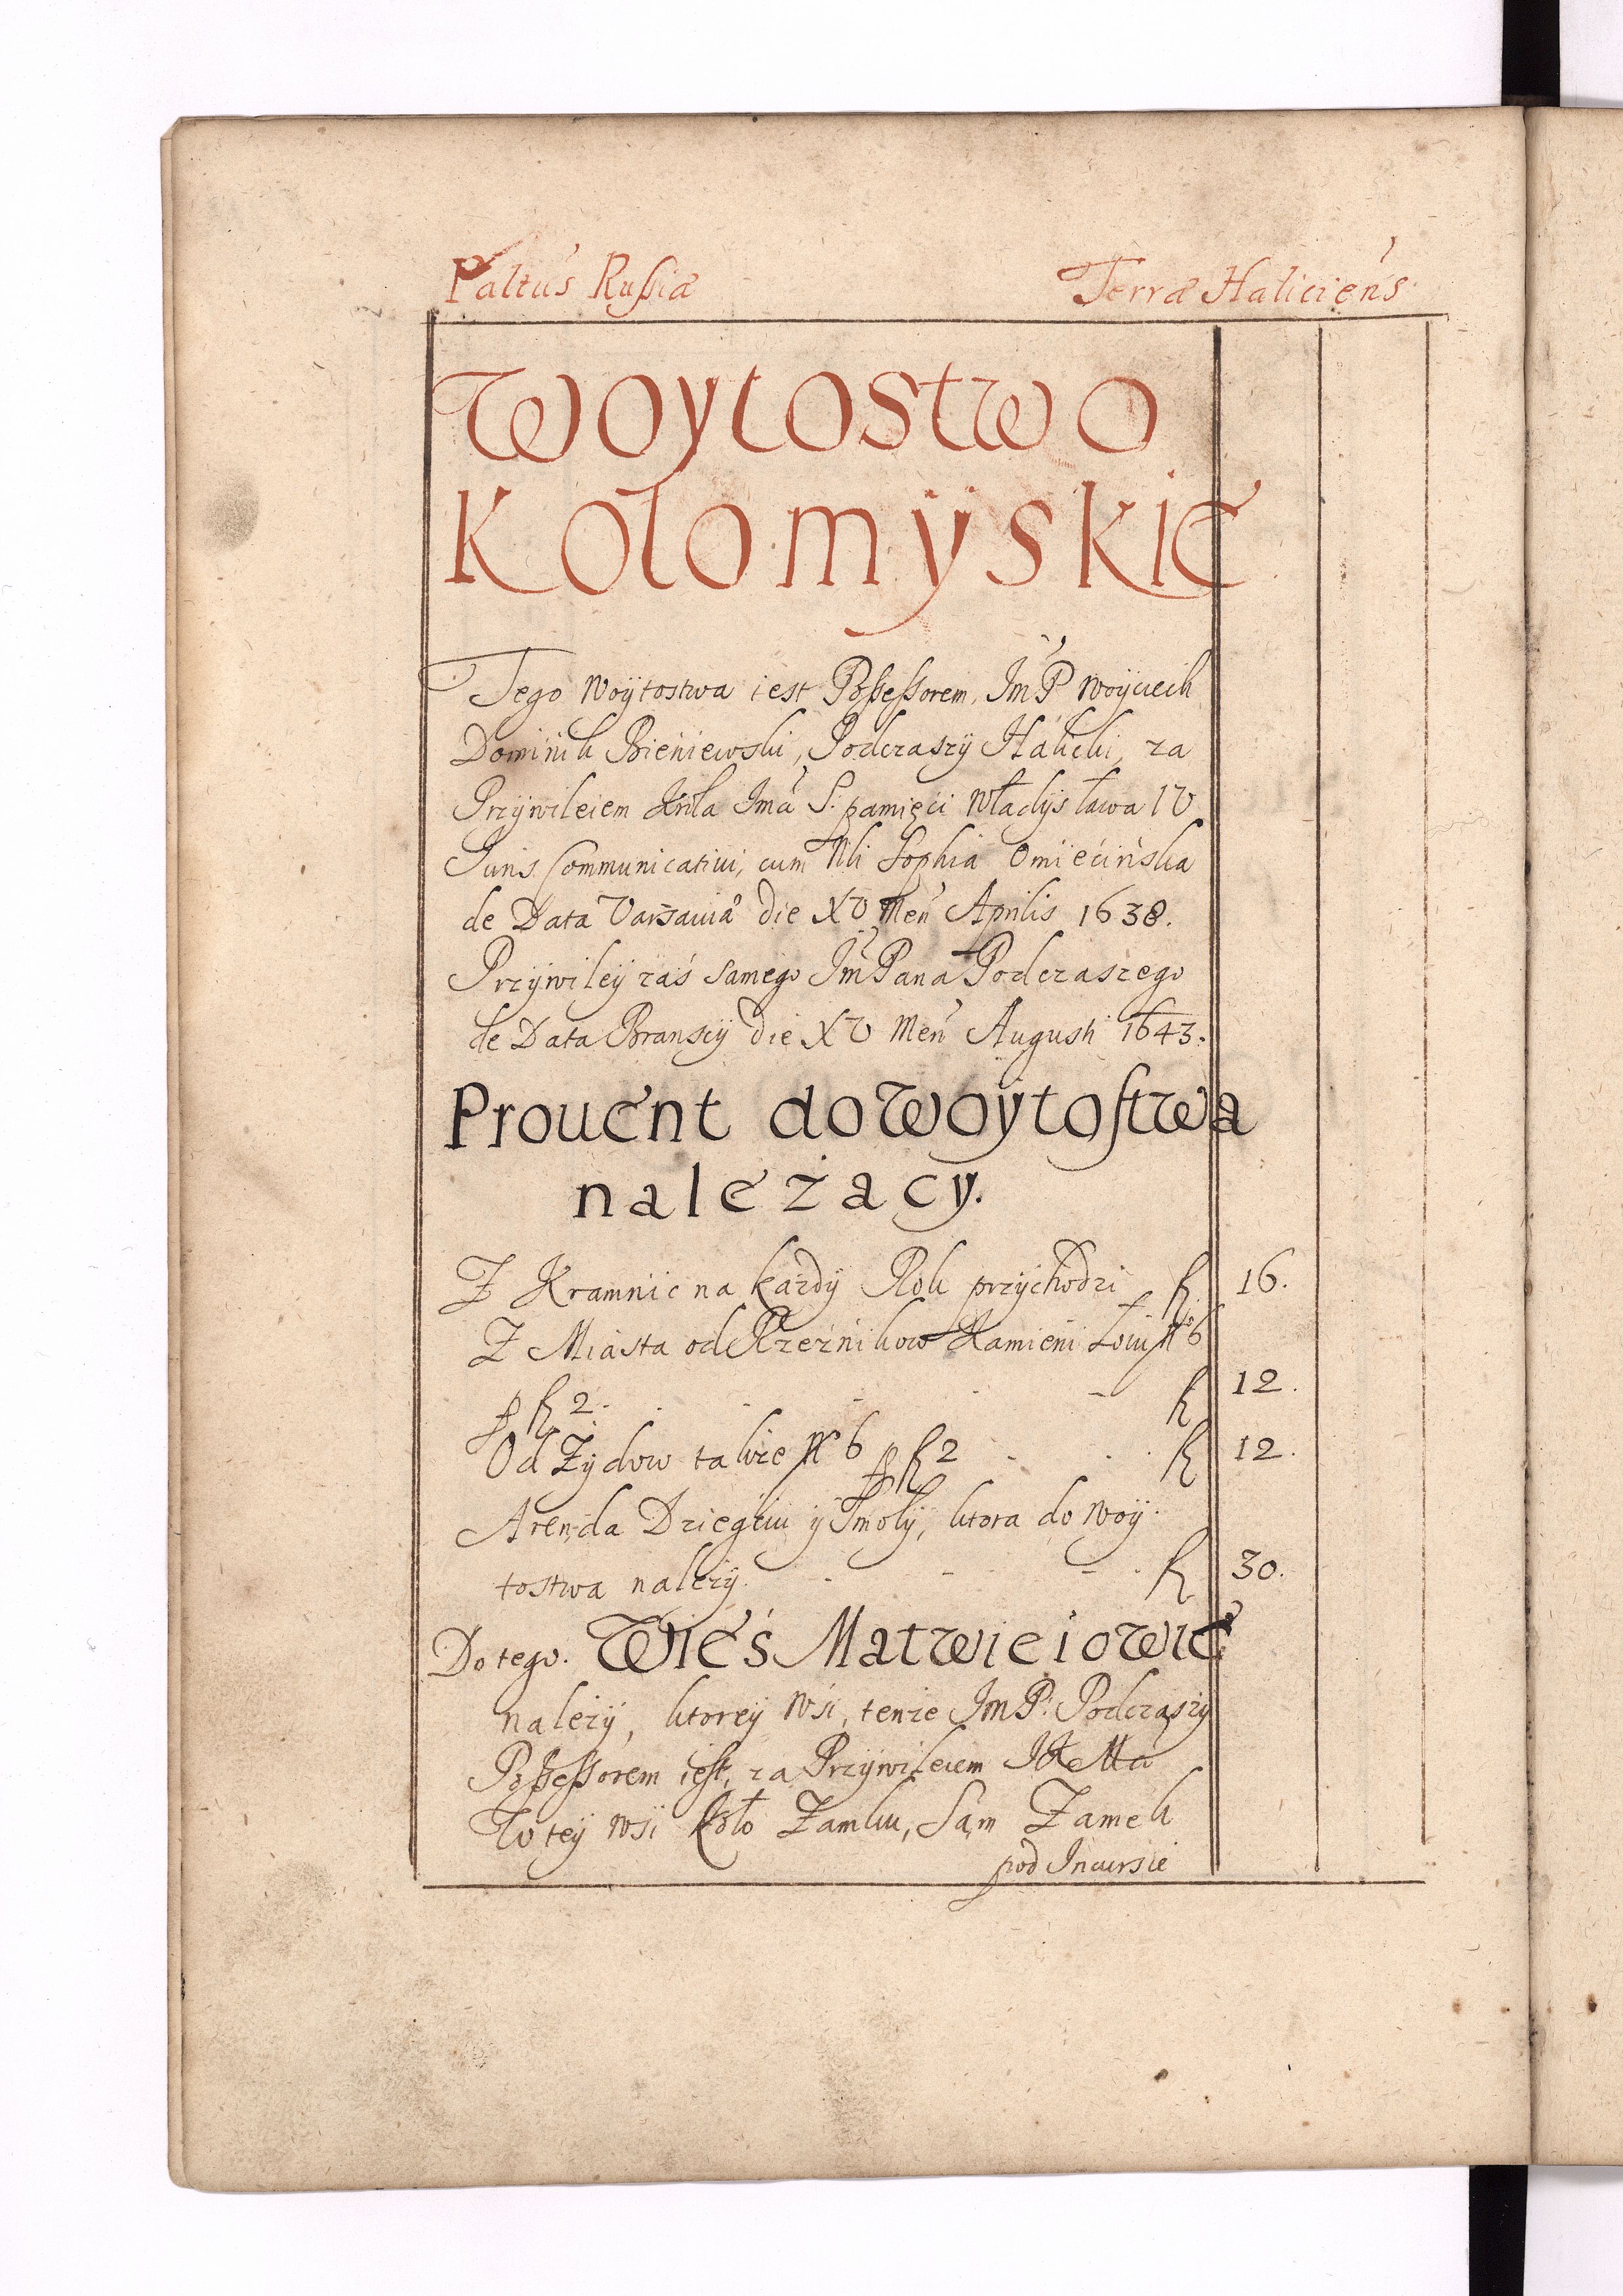 Paltus Russiæ Terræ Haliciens
Woytostwo
Kolomÿskie
Tego Woÿtostwa iest Possessorem, Im P Woÿciech
Dominik Bieniewski, Podczaszÿ Halicki, za
Przÿwileiem Krola Ima S. pamięci Władÿsława IV
Juris Communicatiui, cum Nli Sophia Omiecińska
de Data Varsauiæ die XV Men Aprilis 1638.
Przÿwileÿ zaś samego Im Pana Podczaszego
de Data Branscÿ die XV Men Augusti 1643.
Prouent do Woÿtostwa
należacy.
Z Kramnic na każdÿ Rok przÿchodzi fl 16.
Z Miasta od Rzeznikow Kamieni Loiu No 6
p fl 2. fl 12.
Od Zÿdow takze No 6 p fl 2 fl 12.
Arenda Dziegciu ÿ Smolÿ, ktora do Woÿ
tostwa nalezÿ. fl 30.
Do tego. Wieś Matwieiowie
należÿ, ktoreÿ Wsi, tenze Im P. Podczaszÿ
Possessorem iest, za Przÿwileiem JK Mći
W teÿ Wsi koło Zamku, Sam Zamek
pod Incursie